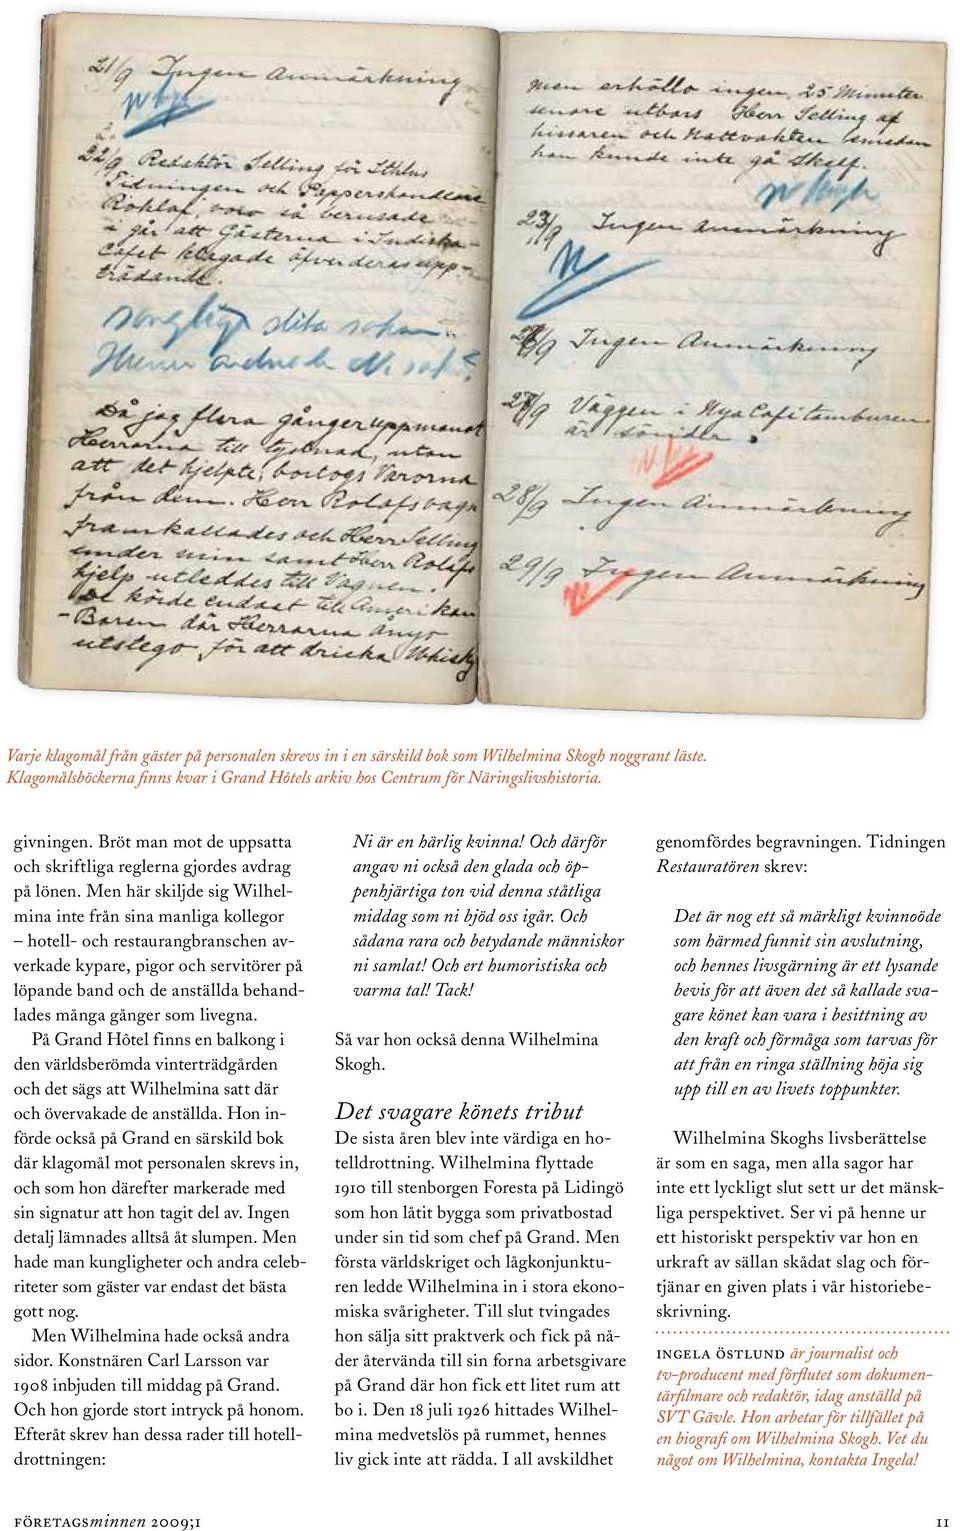 21/9 Ingen Anmärkning
22/9 Redaktör Selling för Sthlms
Tidningen och Pappershandlare
Rohlof, voro så berusade
i går att Gästerna i Indiska-
Cafèt klagade öfver deras upp-
trädande.
Då jag flera gånger uppmanat
Herrarna till tystnad, utan
att det hjelpte, bortogs Varorna
från dem. Herr Rolafs vagn
framkallades och Herr Selling
under min samt Herr Rolafs
hjelp utleddes till Vagnen.
De körde endast till Amerikan
-Baren där Herrarna Ånyo
utstego för att dricka Whisky
men erhöllo ingen, 25 Minuter
senare utbars Herr Selling af
hissaren och Nattvakten emedan
han kunde inte gå Skelf.
23/9 Ingen Anmärkning
26/9 Ingen Anmärkning
27/9 Väggen i Nya Cafétamburen
är sönder.
28/9 Ingen Anmärkning
29/9 Ingen Anmärkning
Varje klagomål från gäster på personalen skrevs in i en särskild bok som Wilhelmina Skogh noggrant läste.
Klagomålsböckerna finns kvar i Grand Hôtels arkiv hos Centrum för Näringslivshistoria.
givningen. Bröt man mot de uppsatta
och skriftliga reglerna gjordes avdrag
på lönen. Men här skiljde sig Wilhel-
mina inte från sina manliga kollegor
– hotell- och restaurangbranschen av-
verkade kypare, pigor och servitörer på
löpande band och de anställda behand-
lades många gånger som livegna.
På Grand Hôtel finns en balkong i
den världsberömda vinterträdgården
och det sägs att Wilhelmina satt där
och övervakade de anställda. Hon in-
förde också på Grand en särskild bok
där klagomål mot personalen skrevs in,
och som hon därefter markerade med
sin signatur att hon tagit del av. Ingen
detalj lämnades alltså åt slumpen. Men
hade man kungligheter och andra celeb-
riteter som gäster var endast det bästa
gott nog.
Men Wilhelmina hade också andra
sidor. Konstnären Carl Larsson var
1908 inbjuden till middag på Grand.
Och hon gjorde stort intryck på honom.
Efteråt skrev han dessa rader till hotell-
drottningen:
Ni är en härlig kvinna! Och därför
angav ni också den glada och öp-
penhjärtiga ton vid denna ståtliga
middag som ni bjöd oss igår. Och
sådana rara och betydande människor
ni samlat! Och ert humoristiska och
varma tal! Tack!
Så var hon också denna Wilhelmina
Skogh.
Det svagare könets tribut
De sista åren blev inte värdiga en ho-
telldrottning. Wilhelmina flyttade
1910 till stenborgen Foresta på Lidingö
som hon låtit bygga som privatbostad
under sin tid som chef på Grand. Men
första världskriget och lågkonjunktu-
ren ledde Wilhelmina in i stora ekono-
miska svårigheter. Till slut tvingades
hon sälja sitt praktverk och fick på nå-
der återvända till sin forna arbetsgivare
på Grand där hon fick ett litet rum att
bo i. Den 18 juli 1926 hittades Wilhel-
mina medvetslös på rummet, hennes
liv gick inte att rädda. I all avskildhet
genomfördes begravningen. Tidningen
Restauratören skrev:
Det är nog ett så märkligt kvinnoöde
som härmed funnit sin avslutning,
och hennes livsgärning är ett lysande
bevis för att även det så kallade sva-
gare könet kan vara i besittning av
den kraft och förmåga som tarvas för
att från en ringa ställning höja sig
upp till en av livets toppunkter.
Wilhelmina Skoghs livsberättelse
är som en saga, men alla sagor har
inte ett lyckligt slut sett ur det mänsk-
liga perspektivet. Ser vi på henne ur
ett historiskt perspektiv var hon en
urkraft av sällan skådat slag och för-
tjänar en given plats i vår historiebe-
skrivning.
INGELA ÖSTLUND är journalist och
tv-producent med förflutet som dokumen-
tärfilmare och redaktör, idag anställd på
SVT Gävle. Hon arbetar för tillfället på
en biografi om Wilhelmina Skogh. Vet du
något om Wilhelmina, kontakta Ingela!
FÖRETAGSminnen 2009;1
11